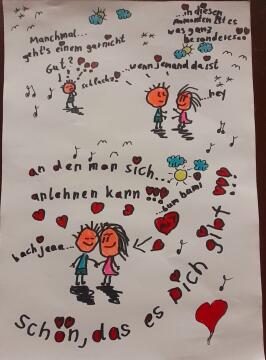 Manchmal...
geht's einem gar nicht
Gut?
seufz...
...in diesen
momenten ist es
was ganz
besonderes...
...wenn jemand da ist
hey
an den man sich...
anlehnen kann!!!
bum bam!
hach jeaa...
Schön, das es Dich gibt!!!